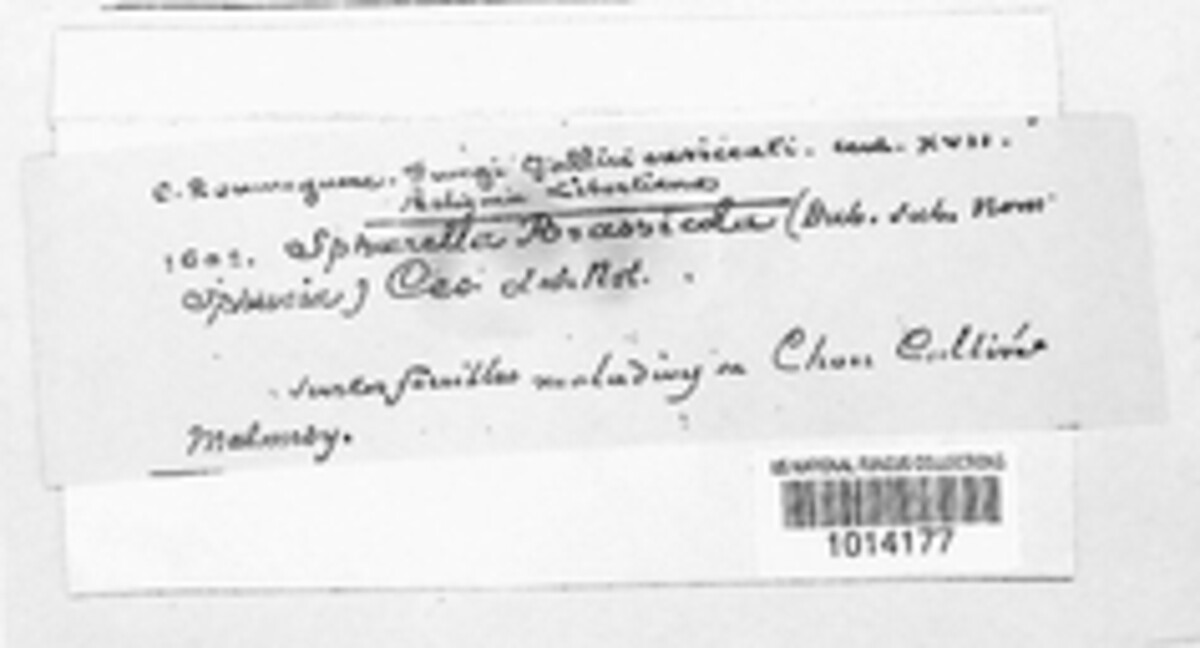 C. Roumeguere. Fungi Gallici exsiccati. cent. XVII.
Reliquia Libertiana
1602. Sphaerella Brassicola (Dub. sub. Nom
Sphaeria) Ces. et de Not.
sur les feuilles du Chou Cultivé
Malmedy.
US NATIONAL FUNGUS COLLECTIONS
1014177